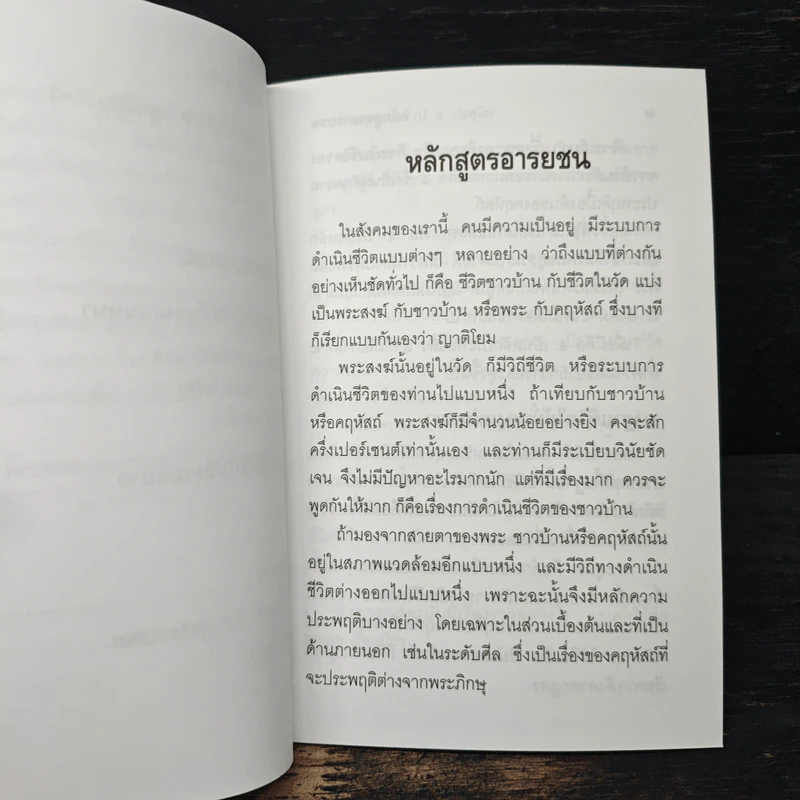 หลักสูตรอารยชน
ในสังคมของเรานี้ คนมีความเป็นอยู่ มีระบบการ
ดำเนินชีวิตแบบต่างๆ หลายอย่าง ว่าถึงแบบที่ต่างกัน
อย่างเห็นชัดทั่วไป ก็คือ ชีวิตชาวบ้าน กับชีวิตในวัด แบ่ง
เป็นพระสงฆ์ กับชาวบ้าน หรือพระ กับคฤหัสถ์ ซึ่งบางที
ก็เรียกแบบกันเองว่า ญาติโยม
พระสงฆ์นั้นอยู่ในวัด ก็มีวิถีชีวิต หรือระบบการ
ดำเนินชีวิตของท่านไปแบบหนึ่ง ถ้าเทียบกับชาวบ้าน
หรือคฤหัสถ์ พระสงฆ์ก็มีจำนวนน้อยอย่างยิ่ง คงจะสัก
ครึ่งเปอร์เซนต์เท่านั้นเอง และท่านก็มีระเบียบวินัยชัด
เจน จึงไม่มีปัญหาอะไรมากนัก แต่ที่มีเรื่องมาก ควรจะ
พูดกันให้มาก ก็คือเรื่องการดำเนินชีวิตของชาวบ้าน
ถ้ามองจากสายตาของพระ ชาวบ้านหรือคฤหัสถ์นั้น
อยู่ในสภาพแวดล้อมอีกแบบหนึ่ง และมีวิถีทางดำเนิน
ชีวิตต่างออกไปแบบหนึ่ง เพราะฉะนั้นจึงมีหลักความ
ประพฤติบางอย่าง โดยเฉพาะในส่วนเบื้องต้นและที่เป็น
ด้านภายนอก เช่นในระดับศีล ซึ่งเป็นเรื่องของคฤหัสถ์ที่
จะประพฤติต่างจากพระภิกษุ